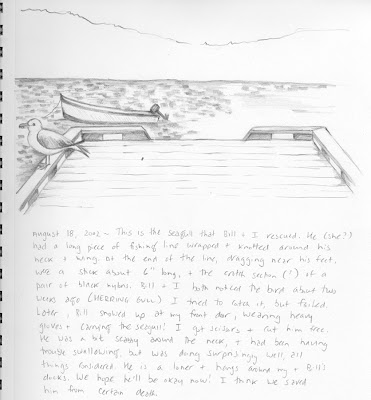 August 18, 2002 ~ This is the seagull that Bill + I rescued. He (she?)
had a long piece of fishing line wrapped + knotted around his
neck + wing. At the end of the line, dragging near his feet,
were a stick about 6" long, + the crotch section (?) of a
pair of black nylons. Bill + I both noticed the bird about two
weeks ago (HERRING GULL) I tried to catch it, but failed.
Later, Bill showed up at my front door, wearing heavy
gloves + carrying the seagull! I got scissors + cut him free.
He was a bit scabby around the neck, + had been having
trouble swallowing, but was doing surprisingly well, all
things considered. He is a loner + hangs around my + Bill's
docks. We hope he'll be okay now! I think we saved
him from certain death.